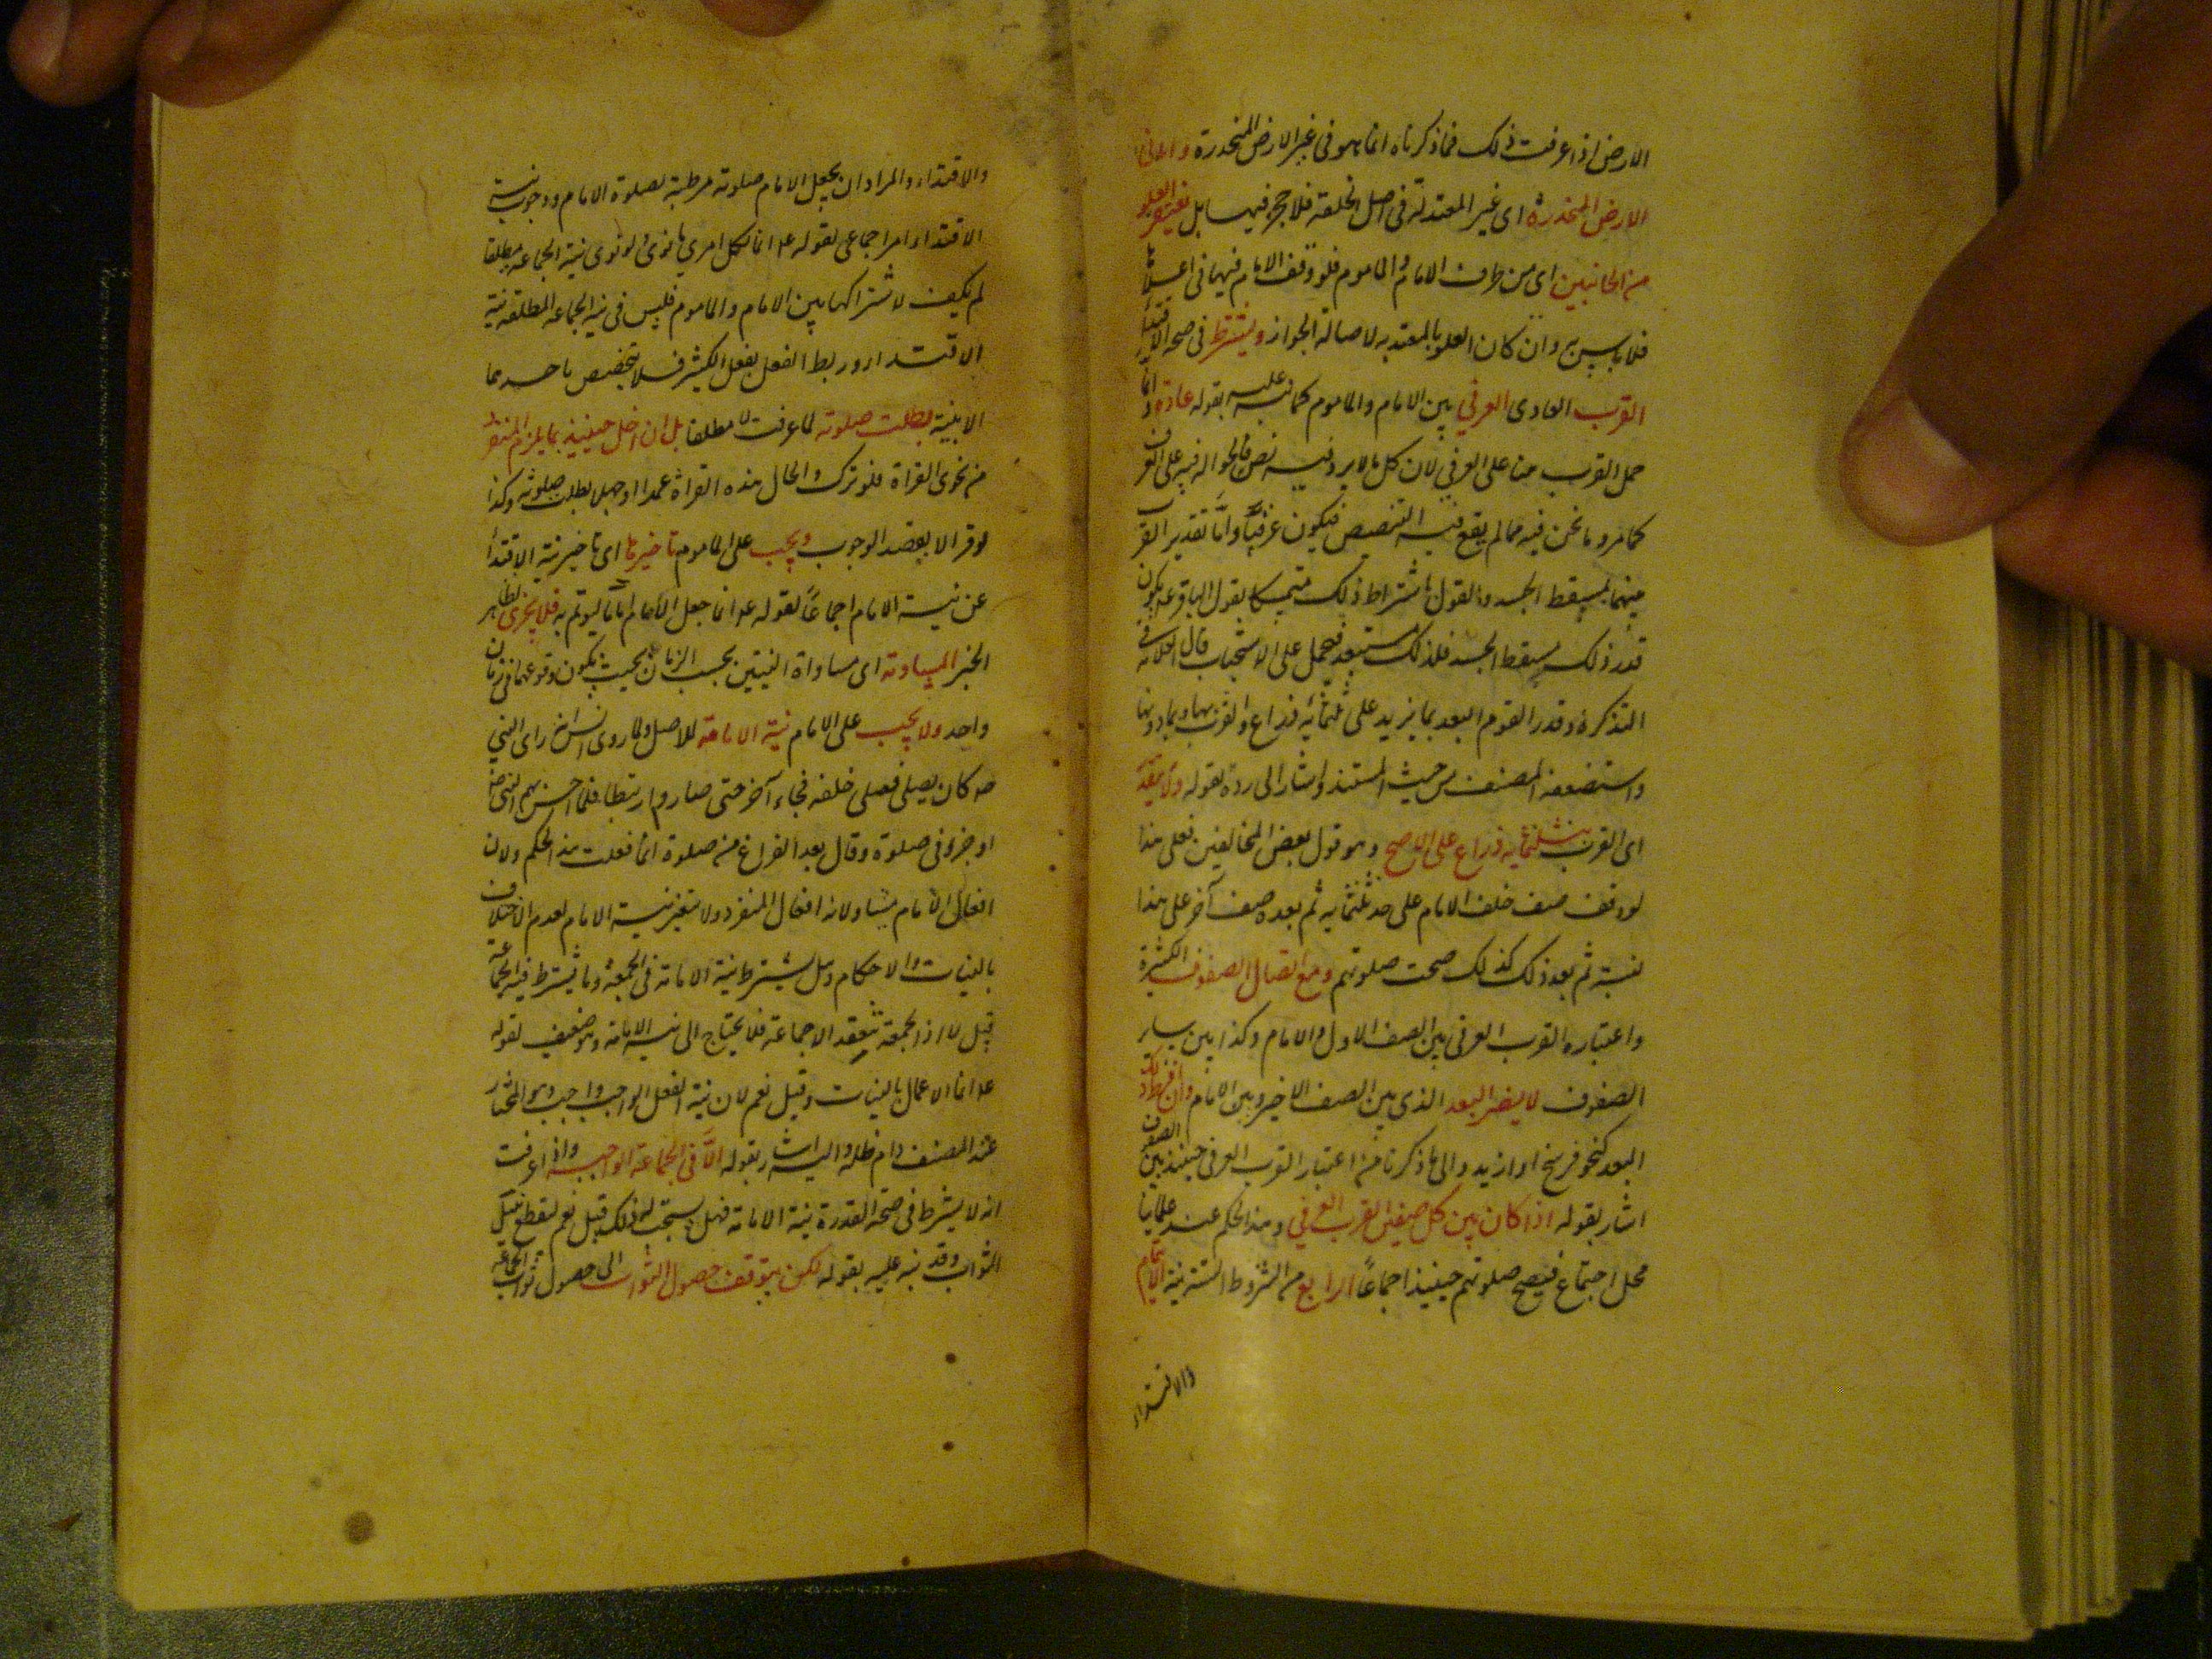 الارض اذا عرفت ذلك فما ذكرناه انما هو فى غير الارض المنحدرة واما فى
الارض المنحدرة اى غير المعتدلة فى اصل الخلقة فلا حجر فيها بل يغتفر العلو
من الجانبين اى من طرف الامام والماموم فلو وقف الامام فيها فى اعلاها
فلا باس به وان كان العلو بالمعتد به لاصالة الجواز ويشترط فى صحة الاقتداء
القرب العادى العرفي بين الامام والماموم كما نبه عليه بقوله عادة وانما
حمل القرب هنا على العرفي لان كل ما لا يرد فيه نص فالحوالة فيه على العرف
كما مر وما نحن فيه مما لم يقع فيه التنصيص فيكون عرفيا واما تقدير القرب
بينهما بمسقط الجسد والقول باشتراط ذلك متمسكا بقول الباقر ع يكون
قدر ذلك مسقط الجسد فلذلك مستبعد فيحمل على الاستحباب قال العلامة فى
التذكرة وقدر القوم البعد بما يزيد على ثلثمائة ذراع والقرب بها وبما دونها
واستضعفه المصنف من حيث المستند واشار الى رده بقوله ولا يتقدر
اى القرب بثلثمائة ذراع على الاصح وهو قول بعض المخالفين فعلى هذا
لو وقف صف خلف الامام على حد ثلثمائة ثم بعده صف آخر على هذا
نسبة ثم بعد ذلك كذلك صحت صلوتهم ومع اتصال الصفوف الكثيرة
واعتباره القرب العرفى بين الصف الاول والامام وكذا بين ساير
الصفوف لا يضر البعد الذى بين الصف الاخير وبين الامام وان افرط ذلك
البعد كنحو فرسخ او ازيد والى ما ذكرنا من اعتبار القرب العرفى حينئذ بين الصفوف
اشار بقوله اذا كان بين كل صفين القرب العرفي وهذا الحكم عند علمائنا
محل اجتماع فيصح صلوتهم حينئذ اجماعًا الرابع من الشروط الستة نية الايتمام
والاقتداء
والاقتداء والمراد ان يجعل الامام صلوته مرتبطة بصلوة الامام ووجوب نية
الاقتداء امر اجماعى لقوله ع انما لكل امرئ ما نوى ولو نوى نية الجماعة مطلقا
لم يكف لاشتراكها بين الامام والماموم فليس فى نية الجماعة المطلقة نية
الاقتداء وربط الفعل بفعل الغير فلا تخصيص باحدهما
الا بنية بطلت صلوته لما عرفت لا مطلقا بل ان اخل حينئذ بما يلزم المنفرد
من نحوى القراة فلو ترك والحال هذه القراة عمدا او جهلا بطلت صلوته وكذا
لو قرا لا بقصد الوجوب ويجب على الماموم تاخيرها اى تاخير نية الاقتدا
عن نية الامام اجماعًا لقوله ع انما جعل الامام امامًا ليوتم به فلا يجزى لظاهر
الخبر المساوته اى مساواة النيتين بحسب الزمان بحيث يكون وقوعهما فى زمان
واحد ولا يجب على الامام نية الامامة للاصل ولما روى انس انه راى النبي
صه كان يصلى فصلى خلفه فجاء آخر حتى صاروا رهطا فلما احس بهم النبى صه
اوجز فى صلوة وقال بعد الفراغ من صلوة انما فعلت هذا لكم ولان
افعال الامام مساو لانه افعال المنفرد ولا متغير نية الامام لعدم الاختلاف
بالنيات والاحكام وهل يشترط نية الامامة فى الجمعة وما يشترط فيه الجماعة
قيل لا اذ الجمعة تنعقد الا جماعة فلا يحتاج الى نية الامامة وهو ضعيف لقوله
ع انما الاعمال بالنيات وقيل نعم لان نية الفعل الواجب واجبة وهو المختار
عند المصنف دام ظله واليه اشار بقوله الا فى الجماعة الواجبة واذا عرفت
انه لا يشترط فى صحة القدوة نية الامامة فهل يستحب له ذلك قيل نعم لقطع بنيل
الثواب وقد نبه عليه بقوله لكن يتوقف حصول الثواب الى حصول ثواب الجماعة